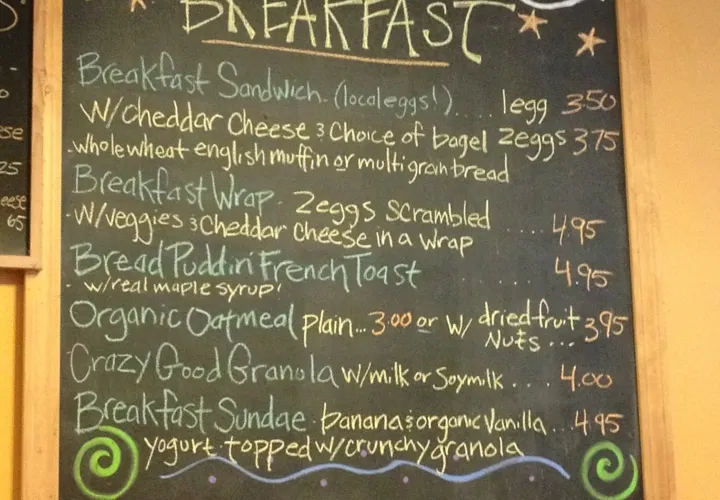 BREAKFAST
Breakfast Sandwich. (local eggs!).... 1egg 3.50
W/Cheddar Cheese & Choice of bagel 2eggs 3.75
whole wheat english muffin or multigrain bread
Breakfast Wrap. 2eggs Scrambled
W/veggies & Cheddar Cheese in a wrap .... 4.95
Bread Puddin' French Toast ... 4.95
w/real maple syrup!
Organic Oatmeal plain... 3.00 or W/ dried fruit 3.95
Nuts ...
Crazy Good Granola w/milk or Soymilk .... 4.00
Breakfast Sundae. banana & organic Vanilla ... 4.95
yogurt. topped w/crunchy granola
ese
25
eese
65